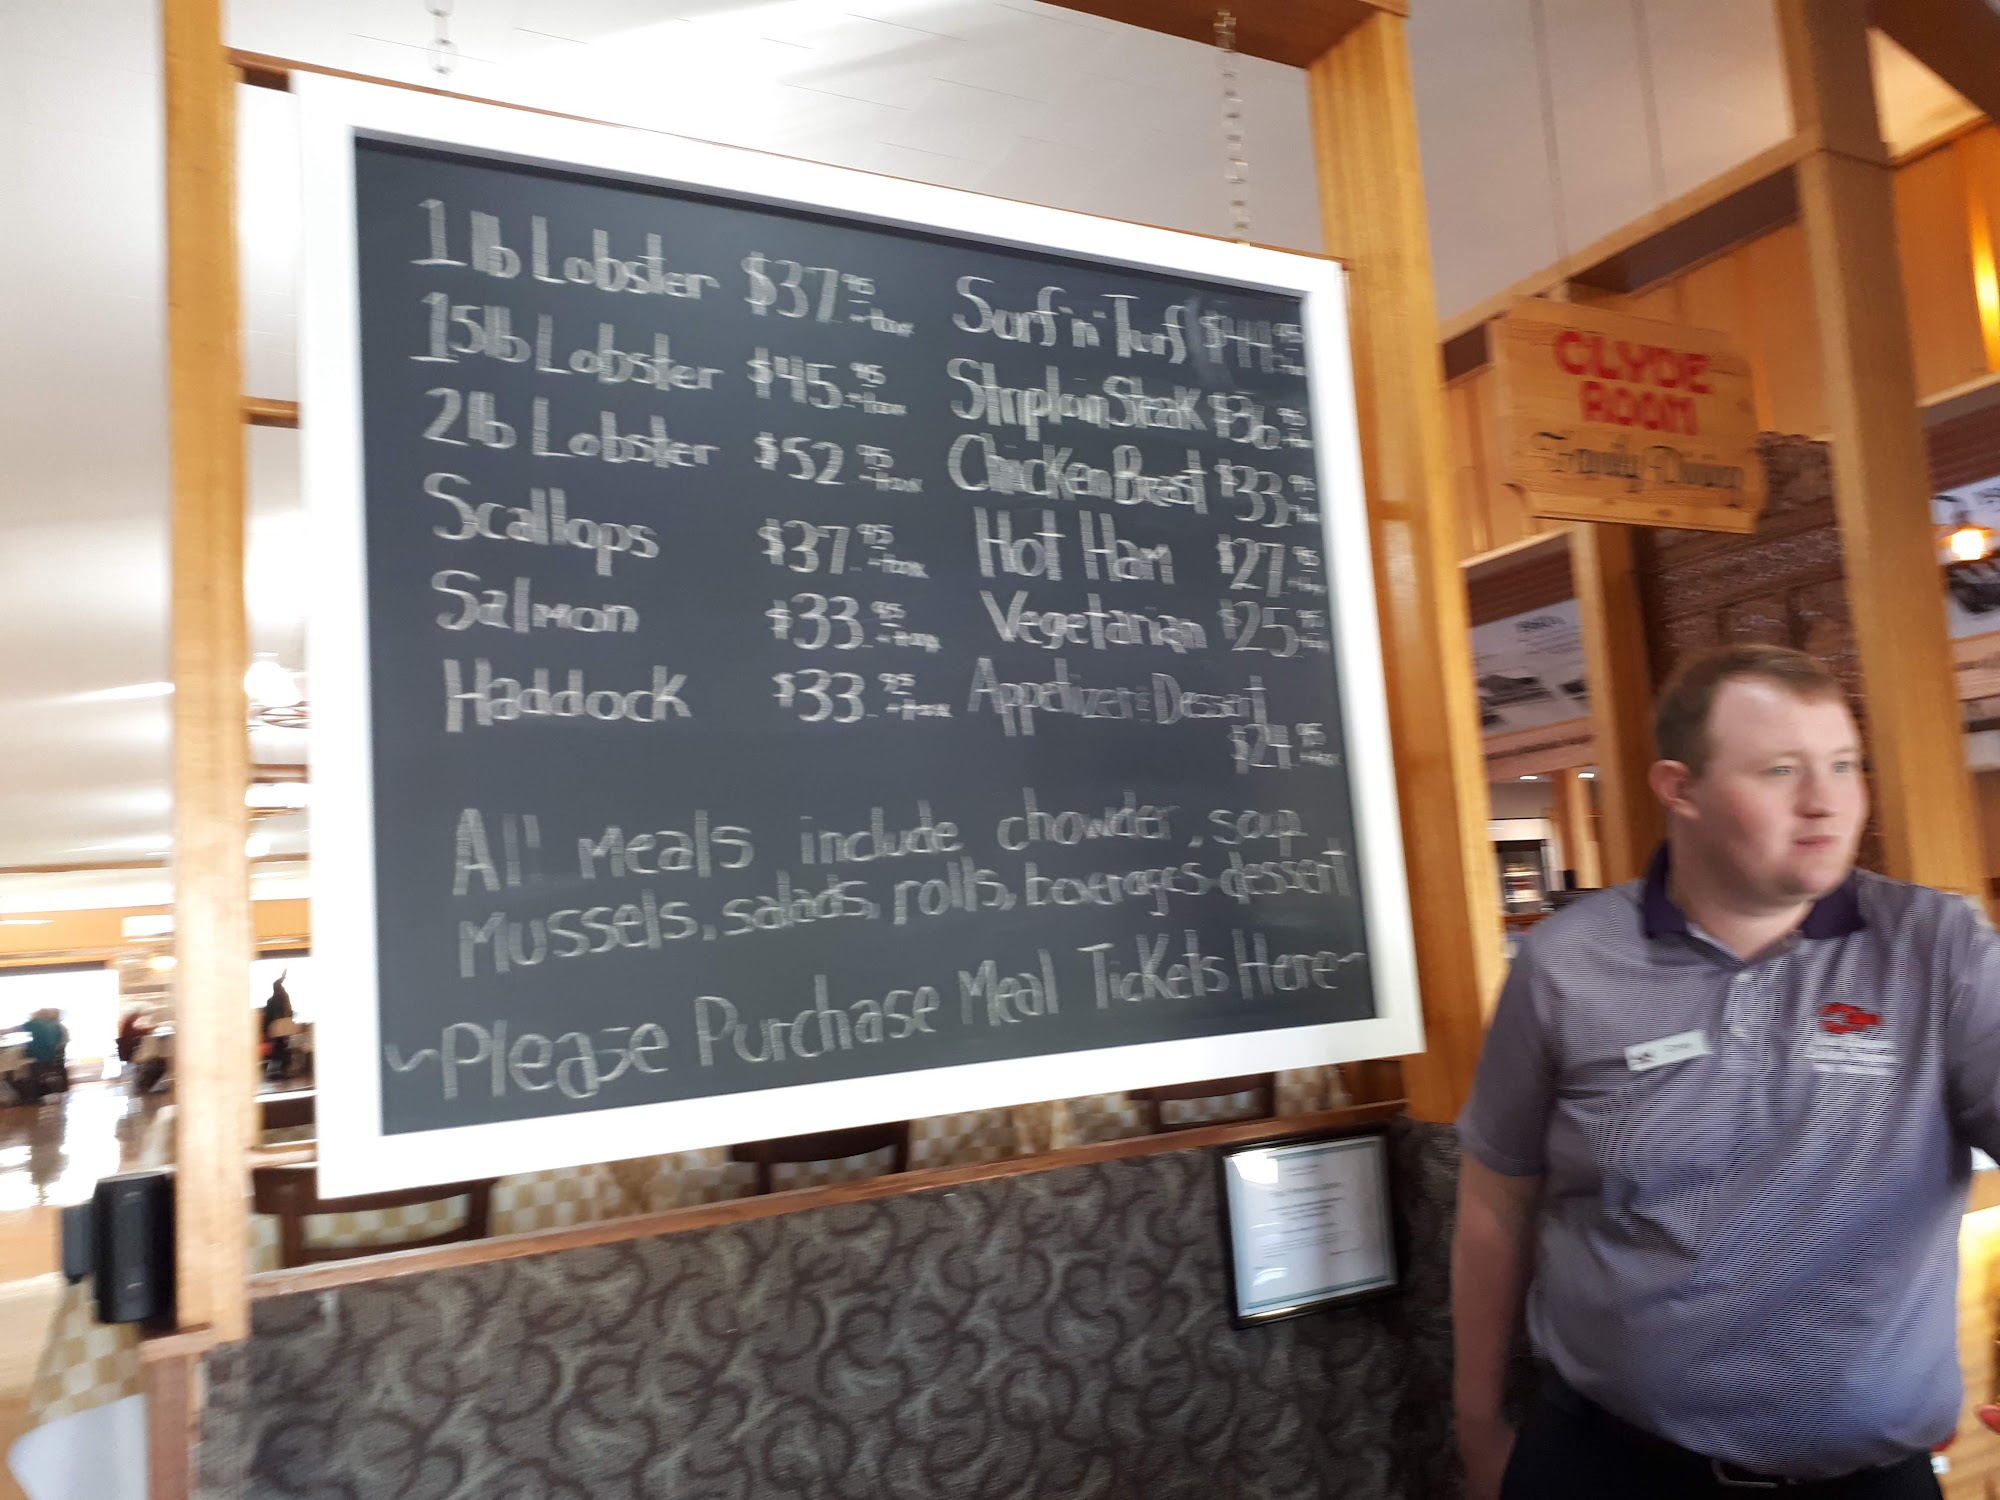 1 lb Lobster $37.95 +tax
1.5 lb Lobster $45.95 +tax
2 lb Lobster $52.95 +tax
Scallops $37.95 +tax
Salmon $33.95 +tax
Haddock $33.95 +tax
Surf 'n' Turf $44.95
Striploin Steak $36.95
Chicken Breast $33.95
Hot Ham $27.95
Vegetarian $25.95
Appetizers Dessert
$24.95 +tax
All Meals include chowder, soup
Mussels, salads, rolls, beverages dessert
~Please Purchase Meal Tickets Here~
CLYDE
ROOM
Family Dining